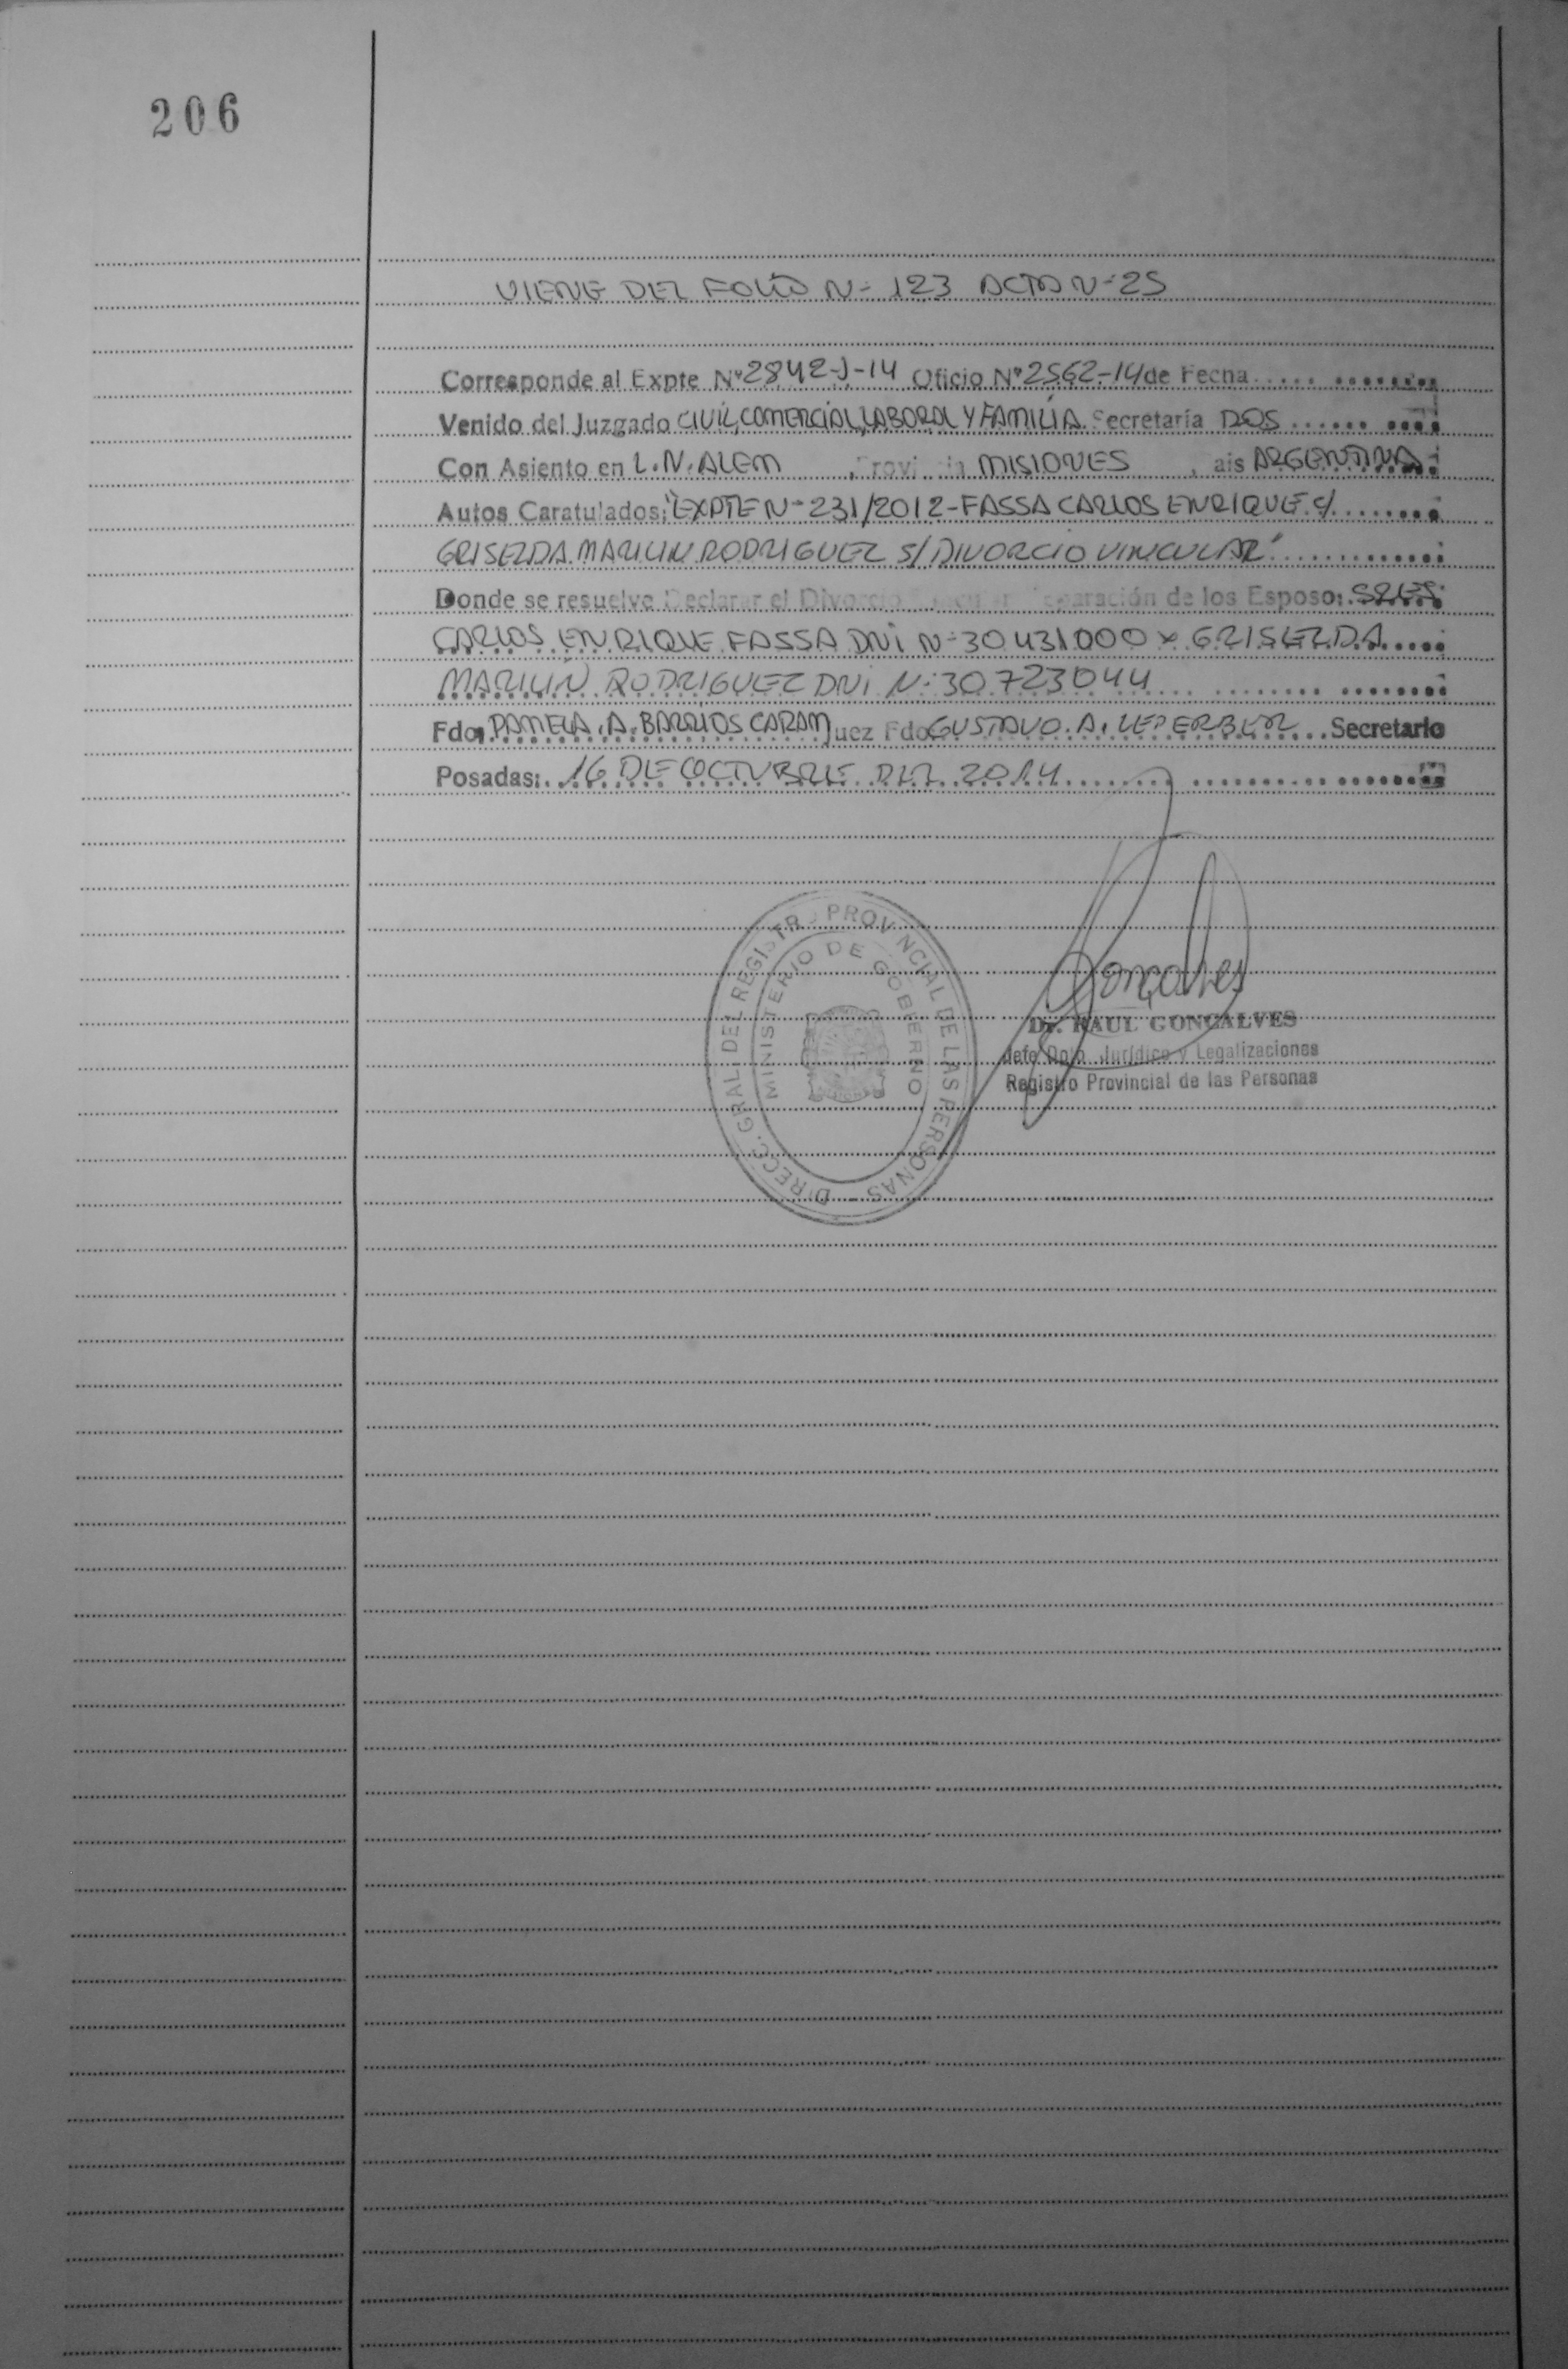 206
VIENE DEL FOLIO N- 123 ACTA N- 25
Corresponde al Expte Nº 2842-J-14 Oficio Nº 2562-14 de Fecha
Venido del Juzgado CIVIL, COMERCIAL, LABORAL Y FAMILIA Secretaría DOS
Con Asiento en L.N. ALEM Provincia MISIONES, ais ARGENTINA
Autos Caratulados: "EXPTE N- 231/2012 - FASSA CARLOS ENRIQUE C/
GRISELDA MARILIN RODRIGUEZ S/ DIVORCIO VINCULAR"
Donde se resuelve Declarar el Divorcio Separación de los Esposo: SRES
CARLOS ENRIQUE FASSA DNI N- 30431000 x GRISELDA
MARILIN RODRIGUEZ DNI N: 30.723044
Fdo: PAMELA. A. BARRIOS CARAM Juez Fdo GUSTAVO. A. Secretario
Posadas: 16 DE OCTUBRE DEL 2014
DIRECC. GRAL. DEL REGISTRO PROVINCIAL DE LAS PERSONAS -
MINISTERIO DE GOBIERNO
Gonçalves
Dr. RAUL GONCALVES
Jefe Dpto. Jurídico y Legalizaciones
Registro Provincial de las Personas